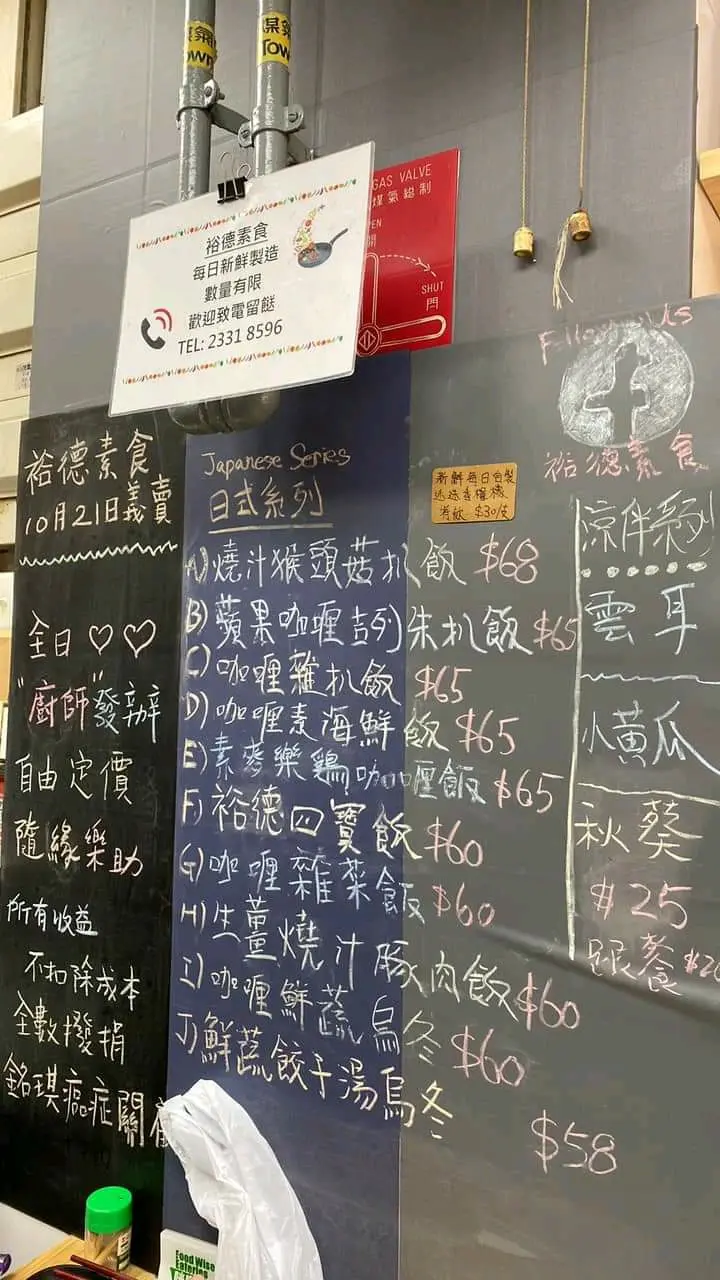 煤氣
Town
裕德素食
每日新鮮製造
數量有限
歡迎致電留餸
TEL: 2331 8596
GAS VALVE
煤氣總制
開
SHUT
閂
裕德素食
10月21日義賣
全日♡♡
"廚師"發辦
自由定價
隨緣樂助
所有收益
不扣除成本
全數撥捐
銘琪癌症關
Japanese Series
日式系列
A)燒汁猴頭菇扒飯 $68
B)蘋果咖喱吉列朱扒飯 $65
C)咖喱雜扒飯 $65
D)咖喱素海鮮飯 $65
E)素麥樂鷄咖喱飯 $65
F)裕德四寶飯 $60
G)咖喱雜菜飯 $60
H)生薑燒汁豚肉飯 $60
I)咖喱鮮蔬烏冬 $60
J)鮮蔬餃子湯烏冬 $58
新鮮每日自製
$30/支
Follow Us
f
裕德素食
涼伴系列
雲耳
小黃瓜
秋葵
$25
跟餐
Food Wise
Eateries